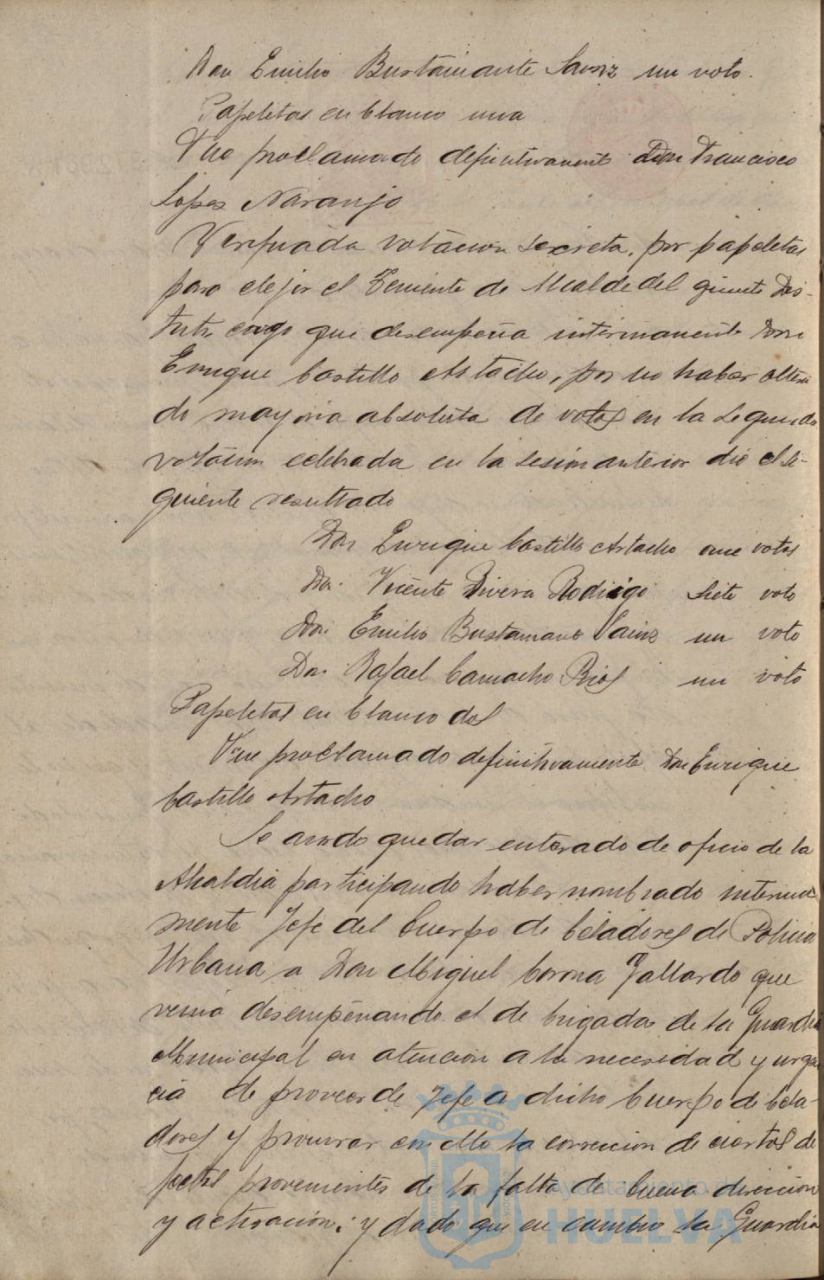 Don Emilio Bustamante Sainz un voto.
Papeletas en blanco una
Fue proclamado definitivamente Don Francisco
Lopez Naranjo
Verificada votacion secreta, por papeletas
para elejir el Teniente de Alcalde del quinto Dis-
trito, cargo que desempeña interinamente Don
Enrique Castillo Astacho, por no haber obteni
do mayoria absoluta de votos en la segunda
votacion celebrada en la sesion anterior dió el si-
guiente resultado
Don Enrique Castillo Astacho once votos
Don Vicente Rivera Rodrigo siete voto
Don Emilio Bustamante Sainz un voto
Don Rafael Camacho Rios un voto
Papeletas en blanco dos
Fue proclamado definitivamente Don Enrique
Castillo Astacho
Se acordo quedar enterado de oficio de la
Alcaldia participando haber nombrado interina
mente Jefe del Cuerpo de Celadores de Policia
Urbana a Don Miguel Corona Gallardo que
venia desempeñando el de brigadas de la Guardia
Municipal en atencion a la necesidad y urgen
cia de proveer de Jefe a dicho Cuerpo de Cela-
dores y procurar con ello la correccion de ciertos de
fectos provenientes de la falta de buena direccion
y activacion; y dado que en cambio la Guardia
Ayuntamiento de
HUELVA